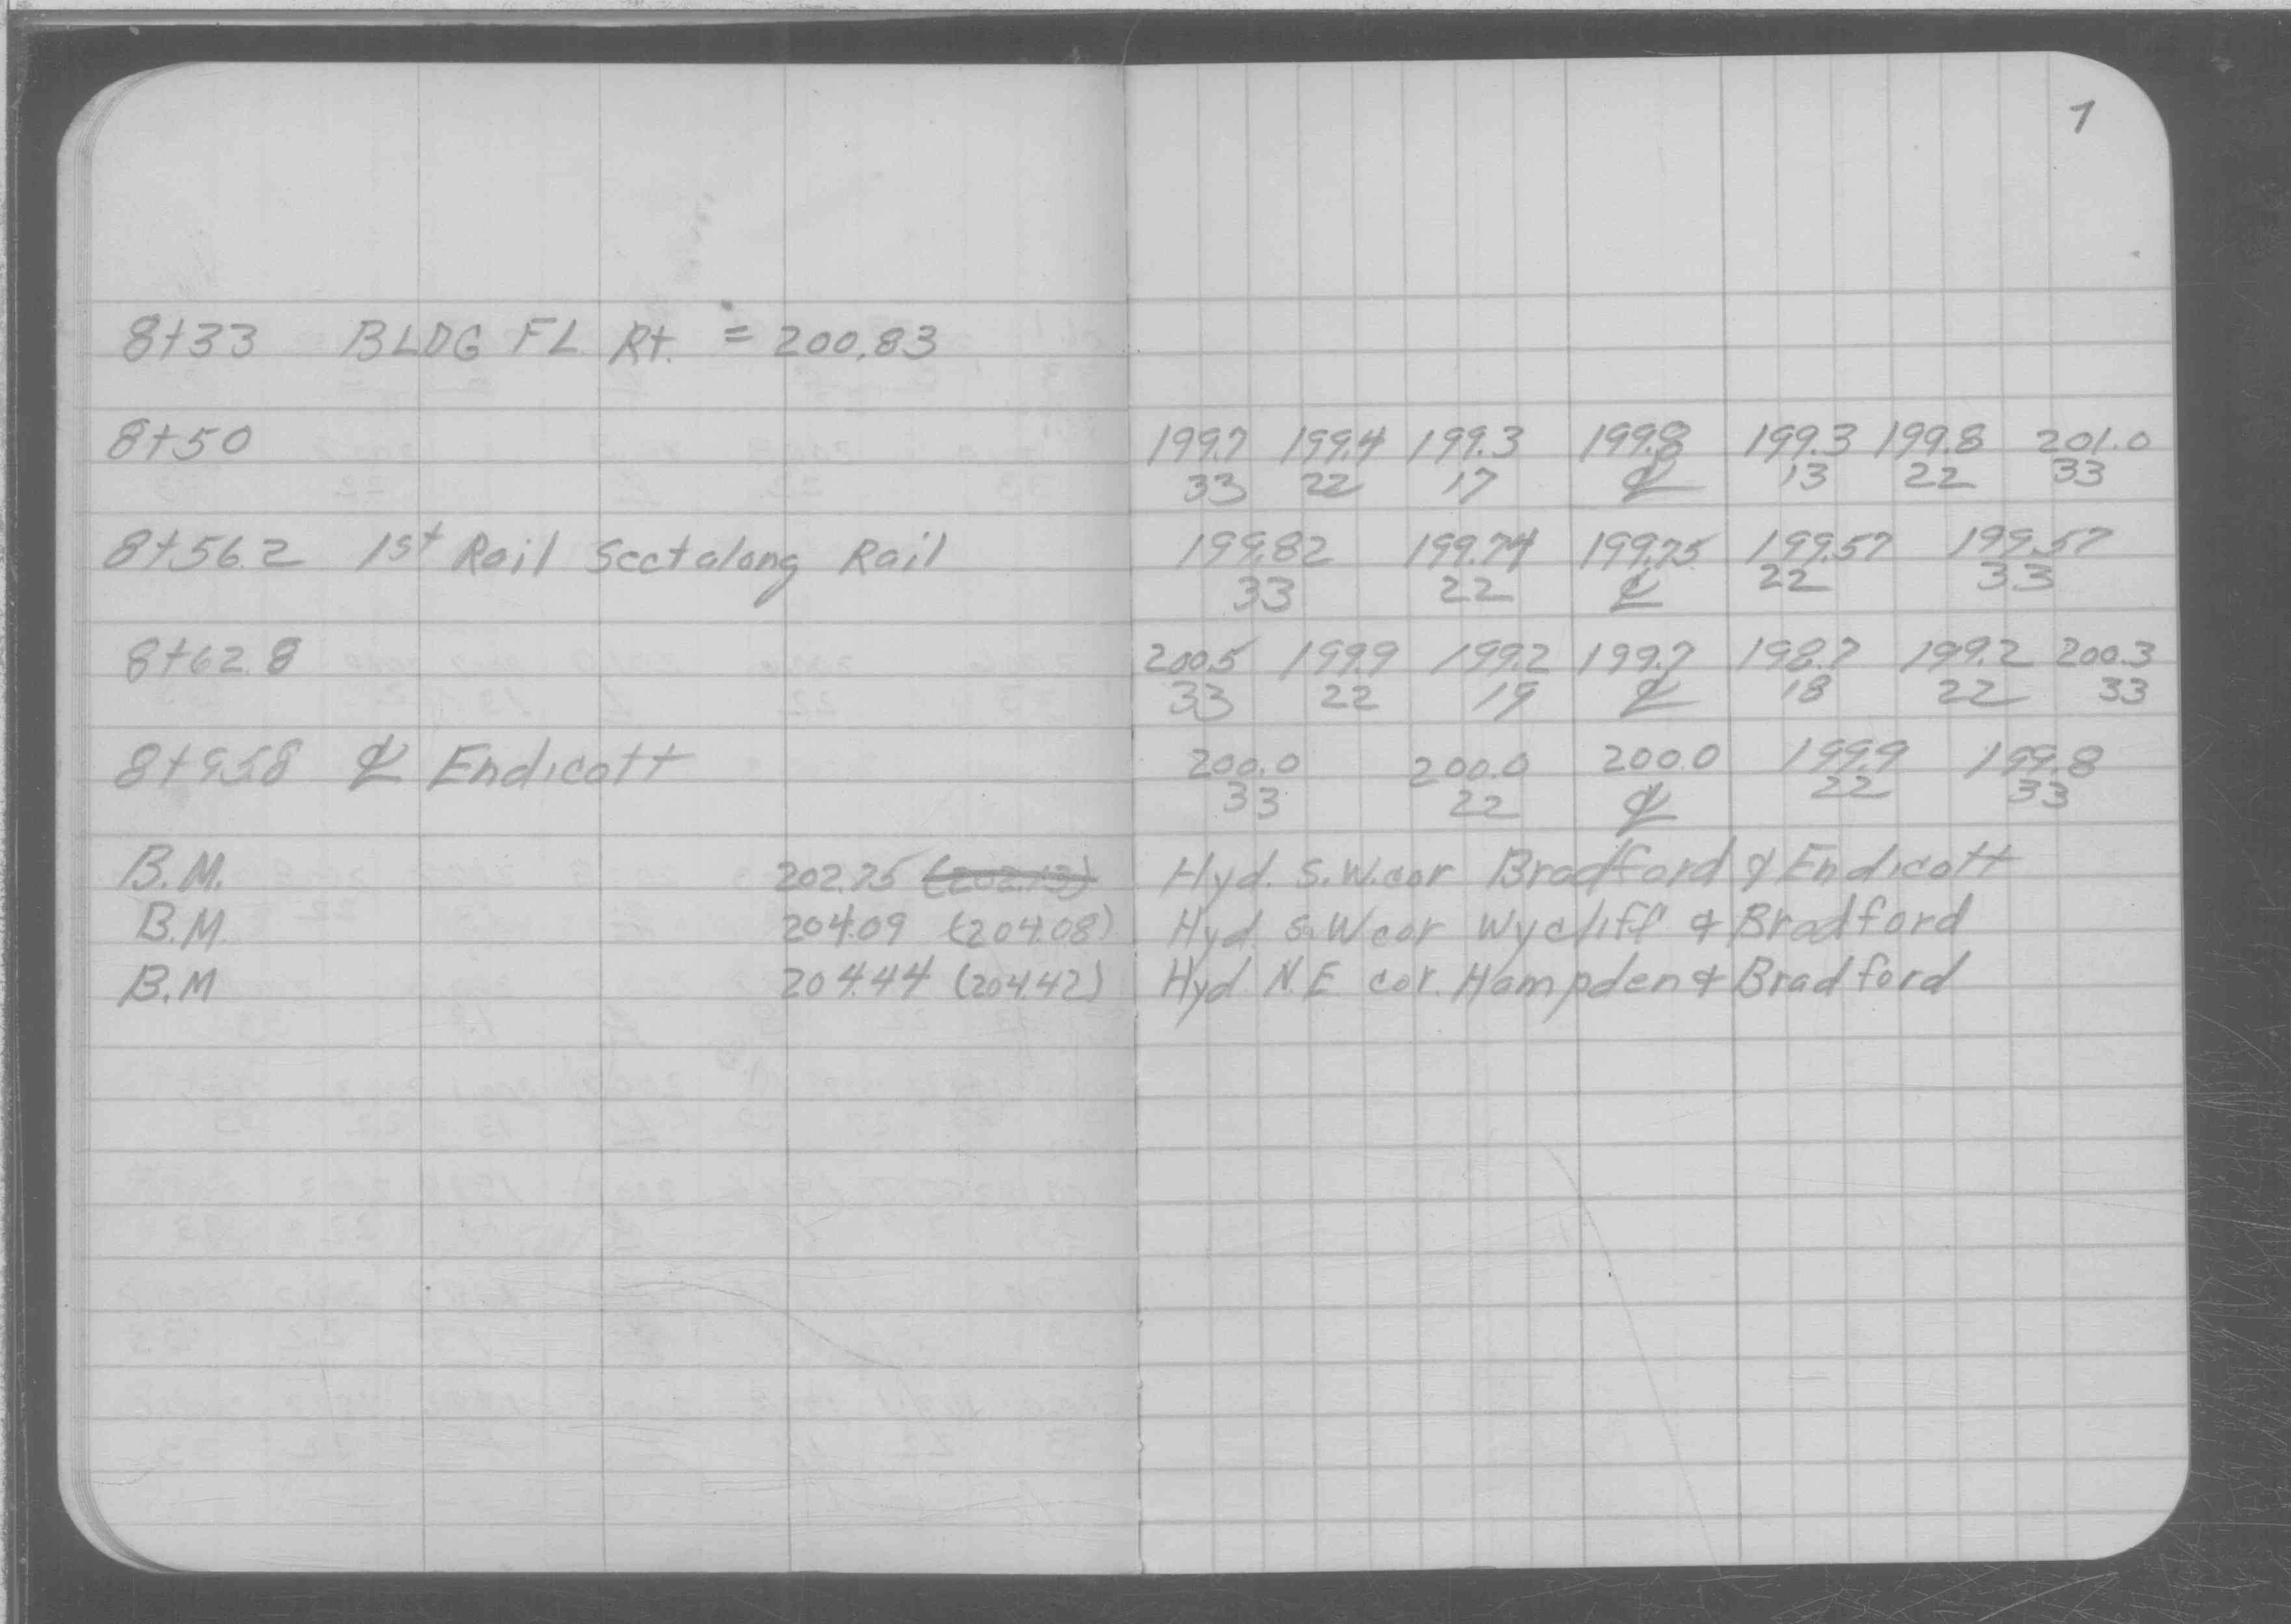 7
8+33 BLDG FL Rt. = 200.83
8+50 199.7 199.4 199.3 199.8 199.3 199.8 201.0
33 22 17 ℄ 13 22 33
8+56.2 1st Rail Sect along Rail 199.82 199.74 199.75 199.57 199.57
33 22 ℄ 22 33
8+62.8 200.5 199.9 199.2 199.7 198.7 199.2 200.3
33 22 19 ℄ 18 22 33
8+95.8 ℄ Endicott 200.0 200.0 200.0 199.9 199.8
33 22 ℄ 22 33
B.M. 202.75 (202.73) Hyd. S.W. cor Bradford & Endicott
B.M. 204.09 (204.08) Hyd. S.W cor Wycliff & Bradford
B.M 204.44 (204.42) Hyd. N.E cor. Hampden & Bradford